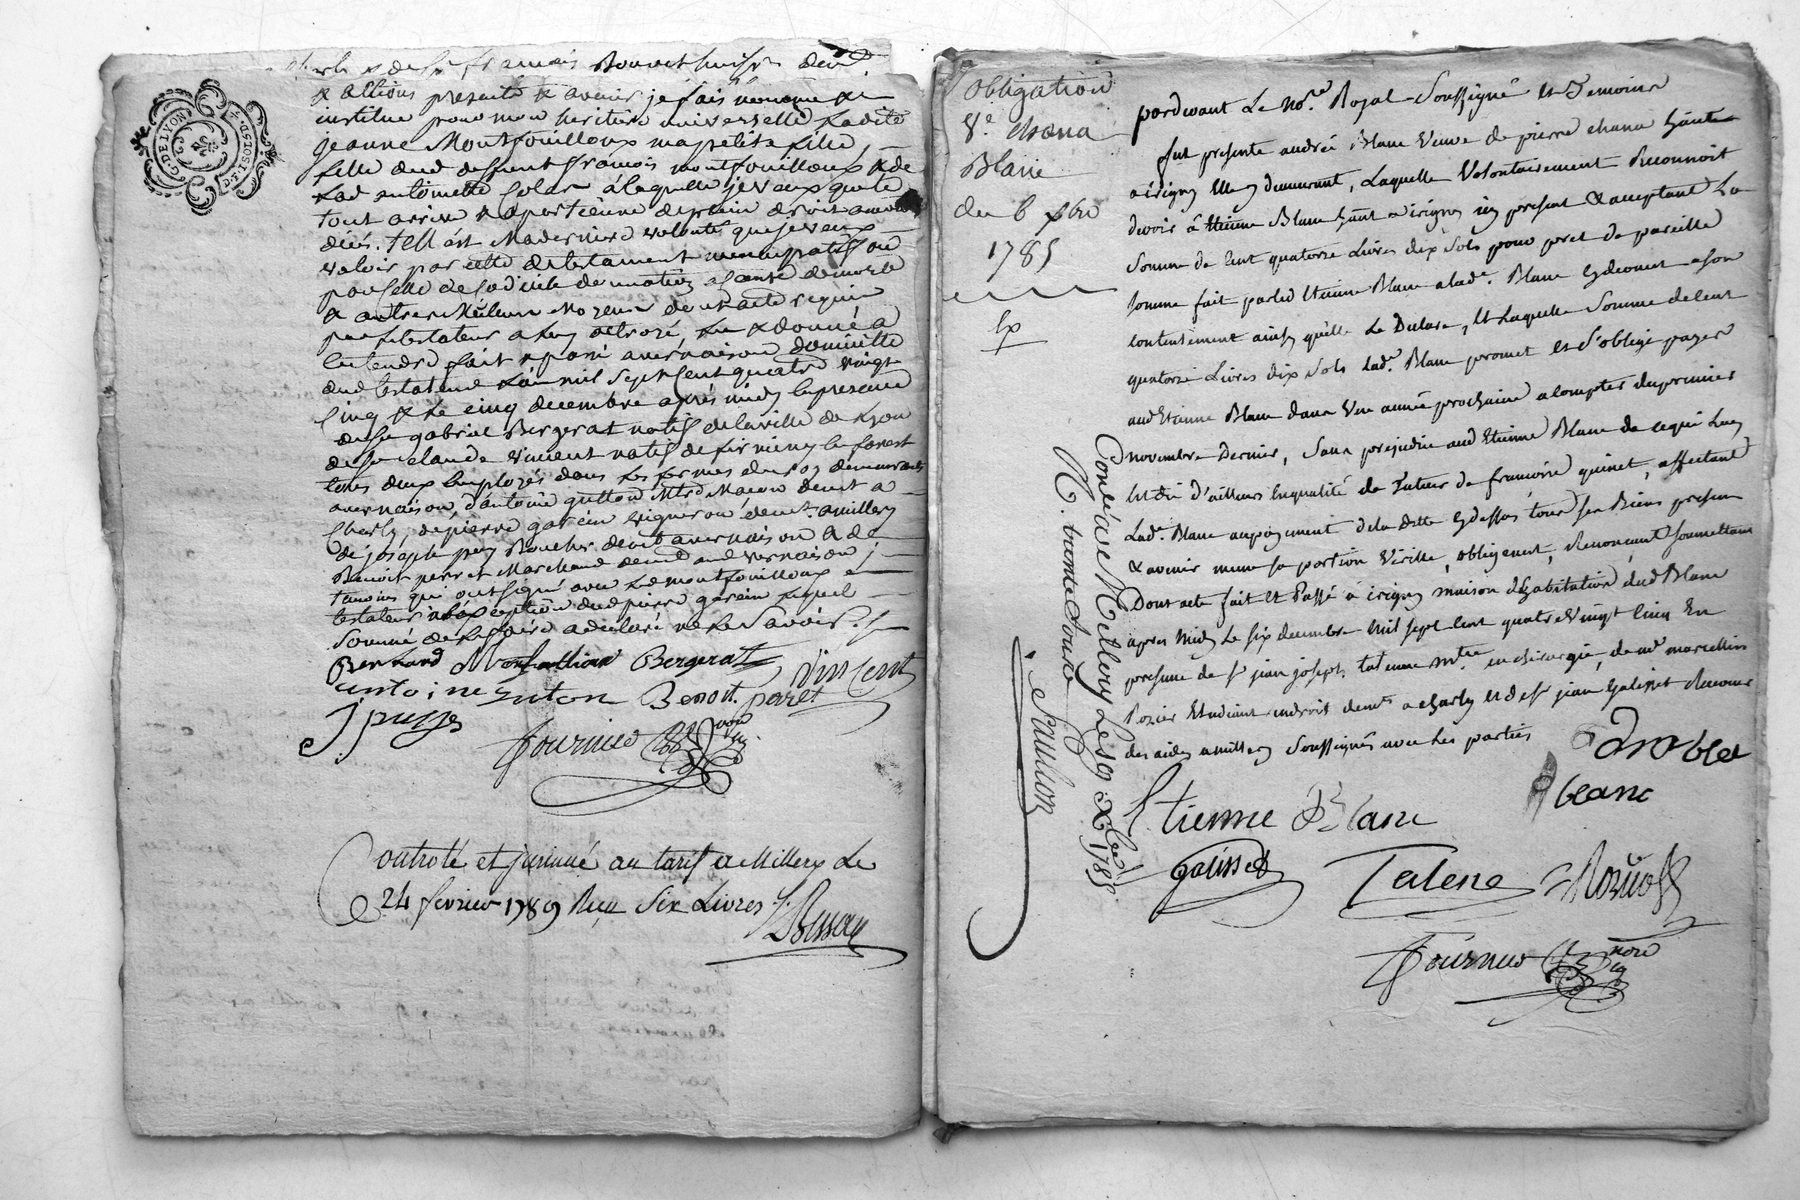 G. DE LYON
D. F. 10S. D. 4.
& de Sr françois Bouvet huissier demt
& actions presents & avenir je fais nomme &
institue pour mon heritiere universelle ladite
jeanne Montfouilloux ma petite fille
fille dud deffunt françois montfouilloux & de
Lad antoinette Colas à laquelle je veux que le
tout arrive & apartienne de plain droit
décés. tell est Ma derniere volonté que je veux
valoir par cette de testament noncupatif ou
par celle de codicile donnation a cause de mort
& autres Meilleurs Moyens dont acte requis
par testateur a luy octroyé, Lu & donné à
entendre fait & passé a vernaison domicille
dud testateur L'an mil sept cent quatre vingt
Cinq & Le cinq decembre après midy En presence
de Sr gabriel Bergerat natif de la ville de Lyon
de Sr claude vincent natif de firminy en forest
tous deux Employés dans Les fermes du roy demeurants
a vernaison, d'antoine gutton Mtre Macon demt a
Charly, de pierre garein vigneron demt a millery
de joseph puy Boucher demt a vernaison & de
Benoit perret Marchand demt aud vernaison
temoins qui ont signé avec Led montfouilloux
testateur à l'exception dud pierre garein lequel
Sommé de le faire a déclaré ne Le Savoir
Bernard Monfouilloux Bergerat Vincent
antoine guton Benoit peret
J puy
fournier nore
Controlé et insinué au tarif a Millery Le
24 fevrier 1789 Reçu Six Livres
obligation
Ve. chana
Blanc
du 6 xbre
1785
Ex
pardevant Le nore Royal Soussigné Et Temoins
fut presente andrée Blanc Veuve de pierre chana habte
a irigny Elle y demeurant, Laquelle Volontairement Reconnoit
devoir à Etienne Blanc habt a irigny icy present & acceptant La
Somme de Cent quatorze Livres dix Sols pour pret de pareille
Somme fait par led Etienne Blanc a lade. Blanc cy devant a son
contentement ainsy qu'elle Le Declare, Et Laquelle Somme de Cent
quatorze Livres dix Sols Lade Blanc promet et S'oblige payer
aud Etienne Blanc dans Une année prochaine a compter du premier
novembre Dernier, Sans prejudice aud Etienne Blanc de ce qui Luy
Est dû d'ailleurs En qualité de Tuteur de françoise quinet, affectant
Lade. Blanc au payement de la Dette cy dessus tous ses Biens presens
& avenir meme sa portion Virille, obligeant, Renoncant Soumettant
Dont acte fait Et Passé à irigny maison d'habitation dud Blanc
apres Midy Le six decembre Mil sept cent quatre Vingt Cinq En
presence de Sr jean joseph talenne mtre en chirurgie, de Mr marcellin
Etudiant en droit demt a charly et de Sr jean galisset Receveur
des aides a millery Soussignés avec Les parties
blanc
Etienne Blanc
galisset
Talene
fournier nore
Controlé a Millery Le 19 Xbre 1785
R. trente Sous
Saulson